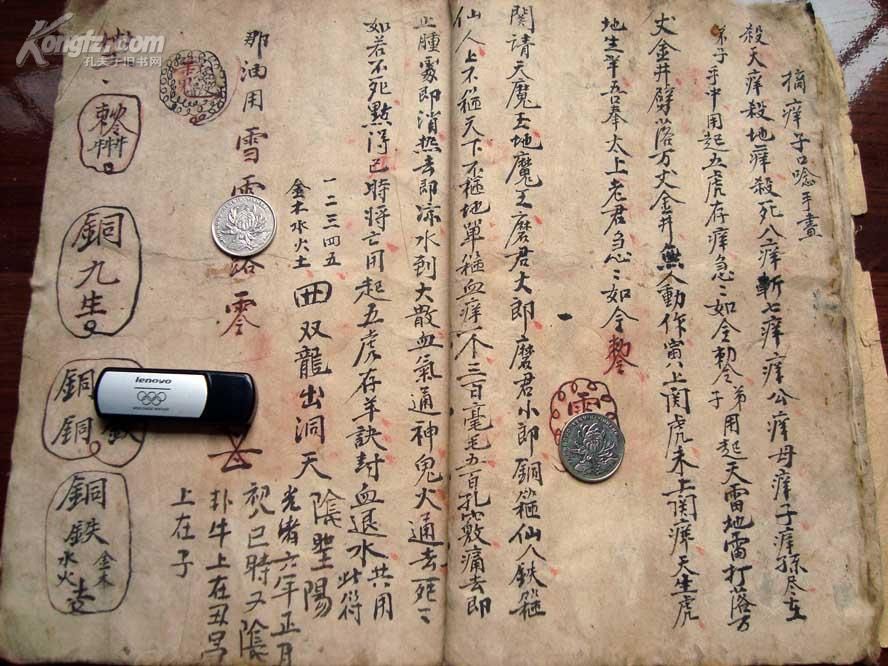 摘痒子口唸手畫
殺天痒殺地痒殺死八痒斬七痒痒公痒母痒子痒孫尽在
弟子手中用起五虎存痒急〻如令勅令弟子用起天雷地雷打落万
丈金井劈落万丈金井無人動作寅八上関虎未上関痒天生虎
地生羊吾奉太上老君急〻如令勅令
関請天魔王地魔王磨君大郎磨君小郎銅箍仙人鉄箍
仙人上不箍天下不箍地单箍血痒一不三百毫毛五百孔竅痛去即
止腫處即消热去即凉水到大散血氣通神鬼火通去死〻
如若不死點得已時将亡用起五虎存羊訣封血退水共用
此符
一二三四五
金木水火土
双龍出洞天
陰聖陽
光緒六年正月
祝已時又陰
扑牛上在丑
上在子
那油用雪
零
雷
銅九生
銅
銅
銅鉄
金木
水火
Kongfz.com
孔夫子旧书网
lenovo